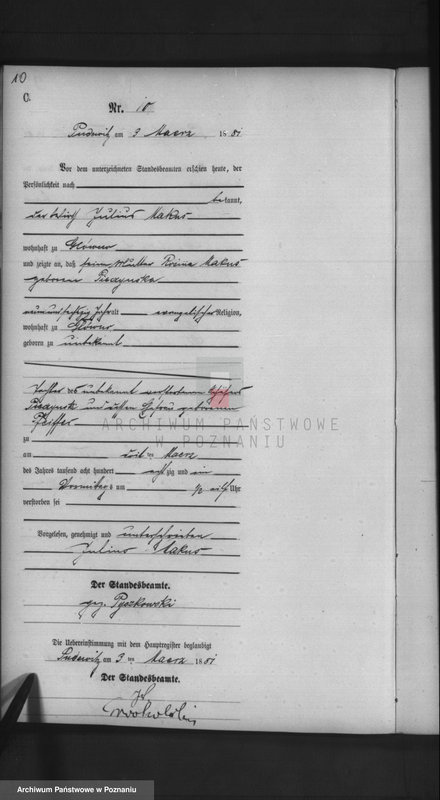 10
C.
Nr. 10
Pudewitz am 3 Maerz 1881
Vor dem unterzeichneten Standesbeamten erschien heute, der
Persönlichkeit nach
bekannt,
der Julius Makus
wohnhaft zu Glówno
und zeigte an, daß seine Mutter Rosina Makus
geborene
Jahr alt evangelischer Religion,
wohnhaft zu Glówno
geboren zu unbekannt
Tochter des unbekannt verstorbenen
und dessen Ehefrau geborenen
Pfeiffer
ARCHIWUM PAŃSTWOWE
W POZNANIU
zu
am ten Maerz
des Jahres tausend acht hundert achtzig und ein
Vormittags um Uhr
verstorben sei
Vorgelesen, genehmigt und unterschrieben
Julius Makus
Der Standesbeamte.
gez. Pyszkowski
Die Uebereinstimmung mit dem Hauptregister beglaubigt
Pudewitz am 3 ten Maerz 1881
Der Standesbeamte.
Archiwum Państwowe w Poznaniu